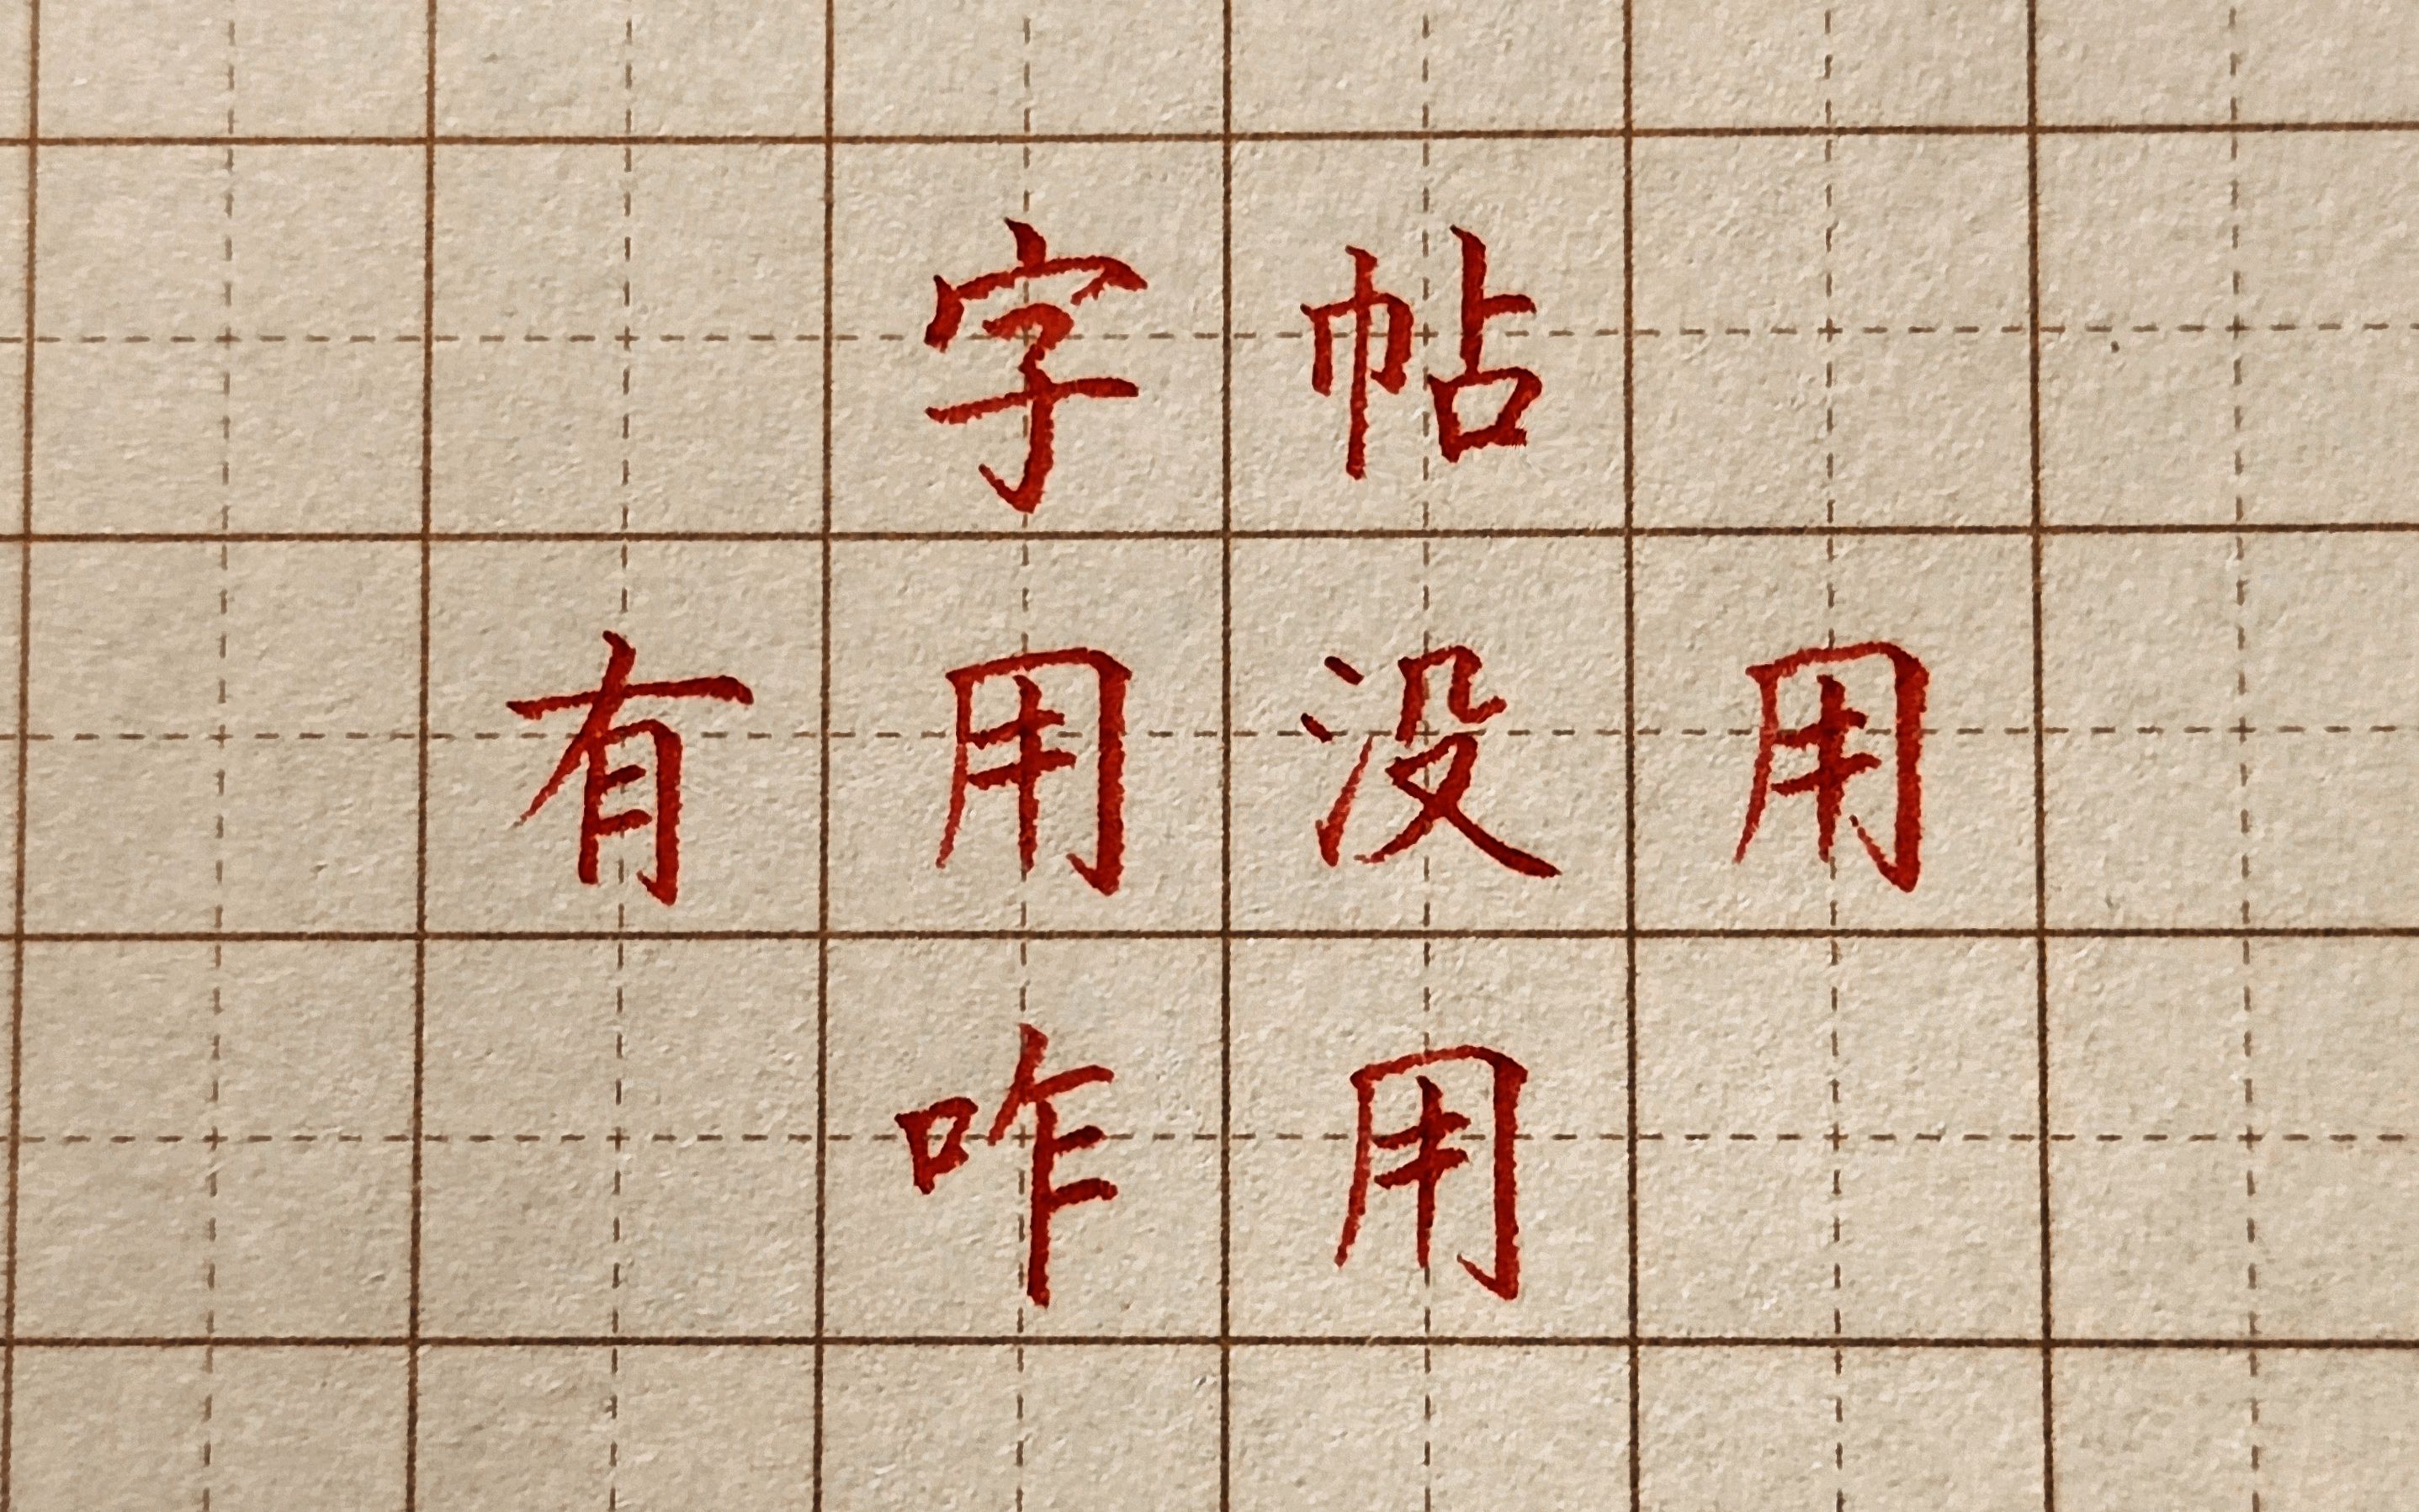 字帖
有用没用
咋用